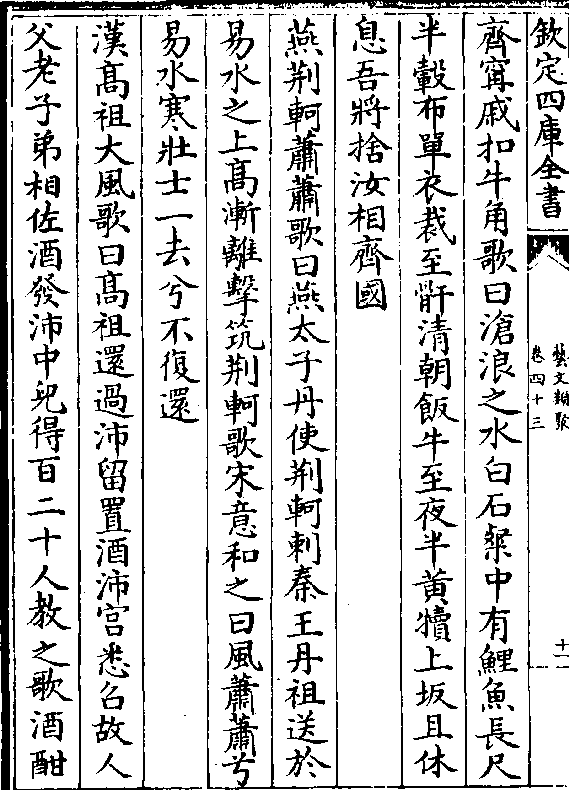 欽定四庫全書
藝文類聚
卷四十三
十一
齊甯戚扣牛角歌曰滄浪之水白石粲中有鯉魚長尺
半轂布單衣裁至骭清朝飯牛至夜半黄犢上坂且休
息吾將捨汝相齊國
燕荆軻蕭蕭歌曰燕太子丹使荆軻刺秦王丹祖送於
易水之上髙漸離擊筑荆軻歌宋意和之曰風蕭蕭兮
易水寒壯士一去兮不復還
漢髙祖大風歌曰髙祖還過沛留置酒沛宫悉召故人
父老子弟相佐酒發沛中兒得百二十人教之歌酒酣